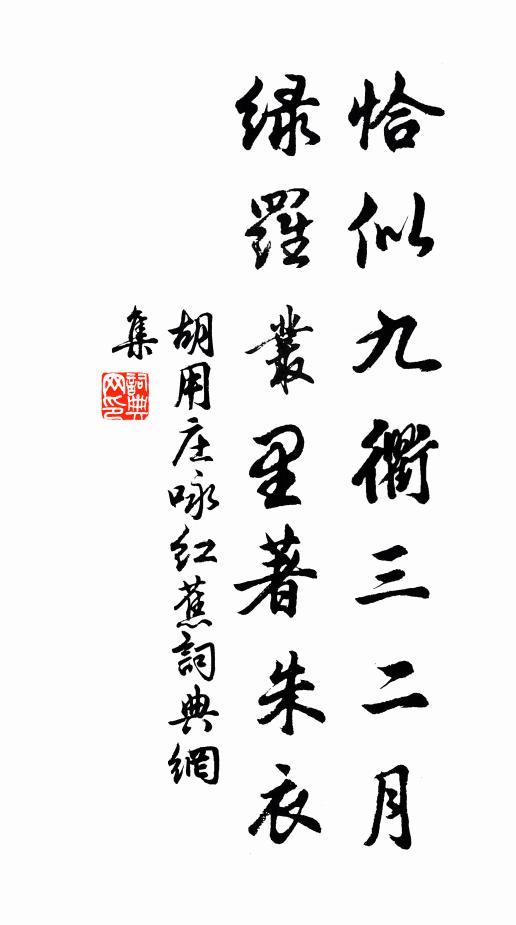 恰似九衢三二月
綠羅叢里著朱衣
胡用庄咏紅蕉詞典網
集
詞典
网印